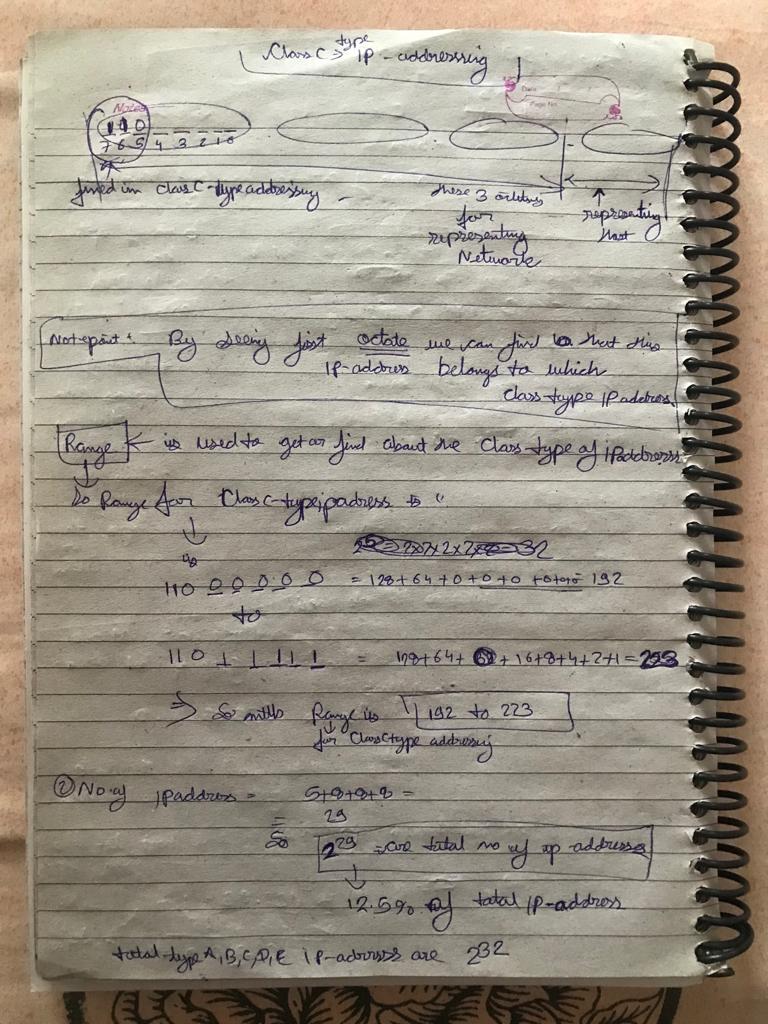 Class C → type IP-addressing
Date
Page No.
Notes
1 1 0 _ _ _ _ _
7 6 5 4 3 2 1 0
fixed in class C-type addressing
these 3 octates for representing Network
representing host
Note point: By seeing first octate we can find that this
IP-address belongs to which
class type IP address.
Range ← is used to get or find about the class type of IP address
So Range for Class C-type ip address is "
110 0 0 0 0 0 = 128+64+0+0+0+0+0+0= 192
to
110 1 1 1 1 1 = 128+64+0+16+8+4+2+1=223
⇒ So Range is 192 to 223
for Class C type addressing
② No. of ip address = 5+8+8+8 =
= 29
So 2^29 = are total no of ip addresses
12.5% of total IP-address
total type A,B,C,D,E IP-adresses are 2^32